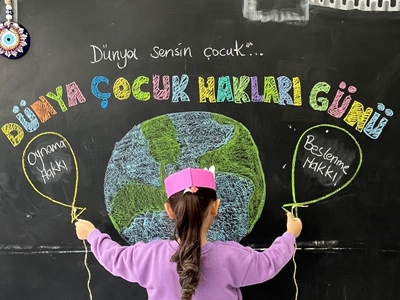 Dünya sensin çocuk...
DÜNYA ÇOCUK HAKLARI GÜNÜ
Oynama
Hakkı
Beslenme
Hakkı